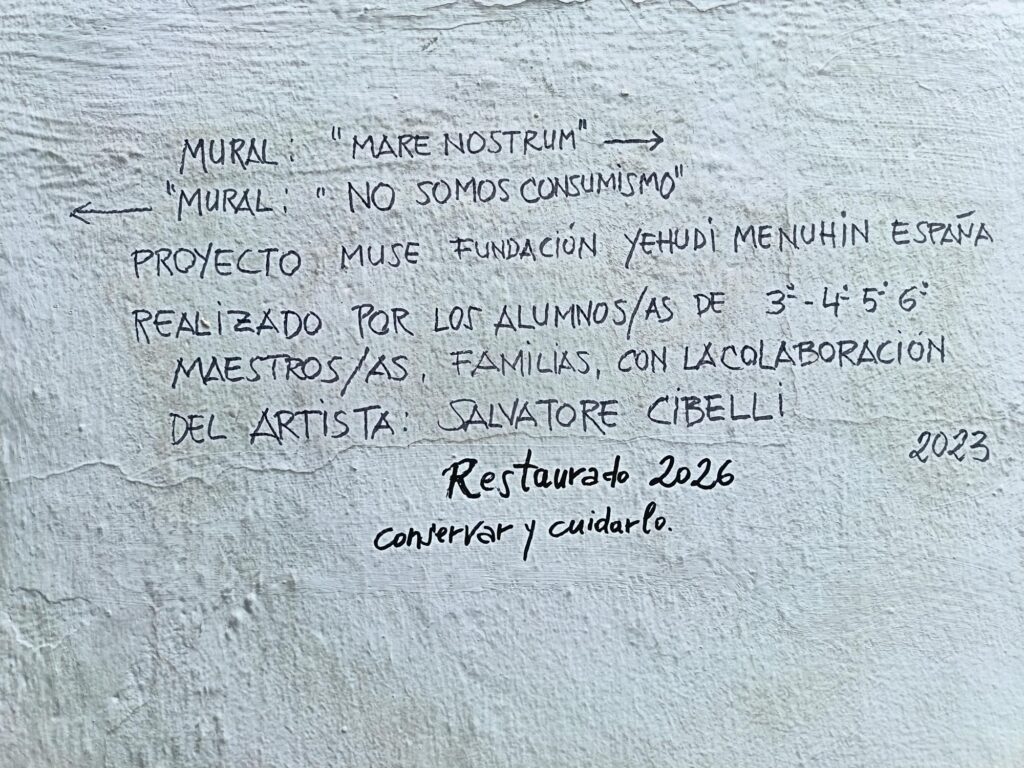 MURAL: "MARE NOSTRUM" →
← "MURAL: " NO SOMOS CONSUMISMO"
PROYECTO MUSE FUNDACIÓN YEHUDI MENUHIN ESPAÑA
REALIZADO POR LOS ALUMNOS/AS DE 3º-4º 5º 6º
MAESTROS/AS, FAMILIAS, CON LA COLABORACIÓN
DEL ARTISTA: SALVATORE CIBELLI
2023
Restaurado 2026
conservar y cuidarlo.